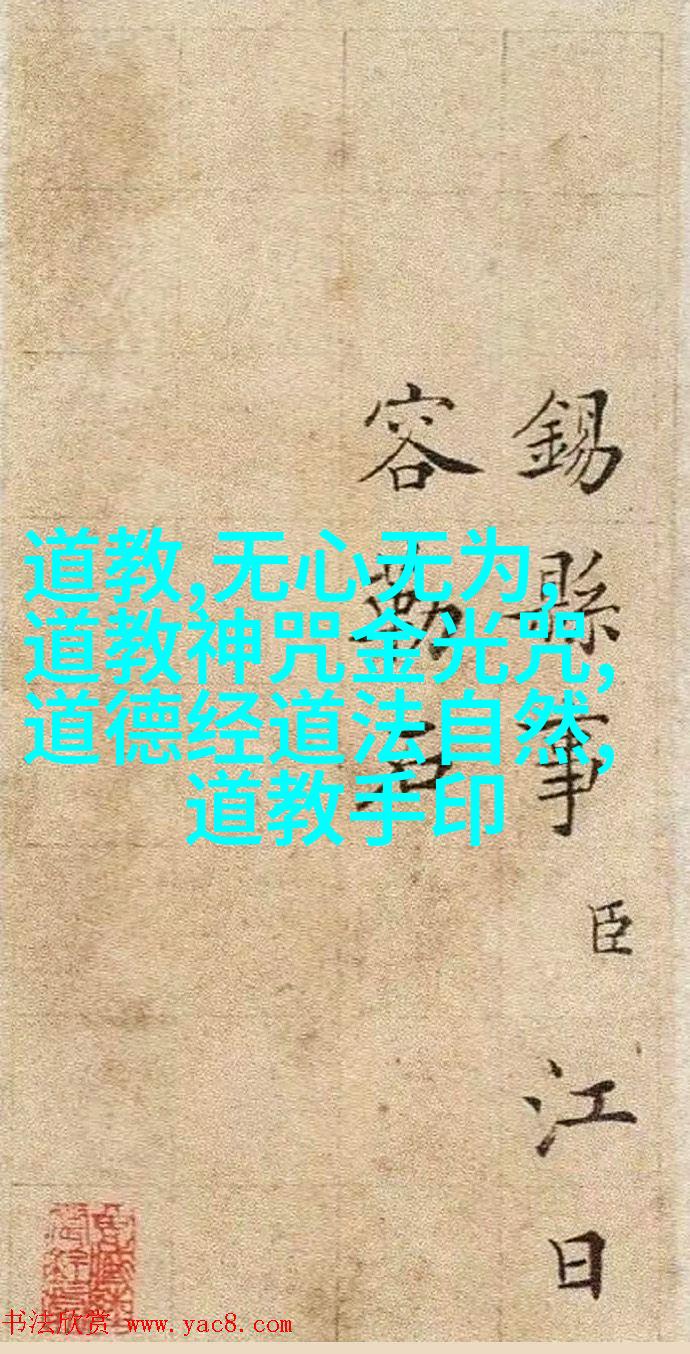 錫縣事臣江日
容勒石
道教,无心无为,
道教神咒金光咒,
道德经道法自然,
道教手印
书法欣赏 www.yac8.com